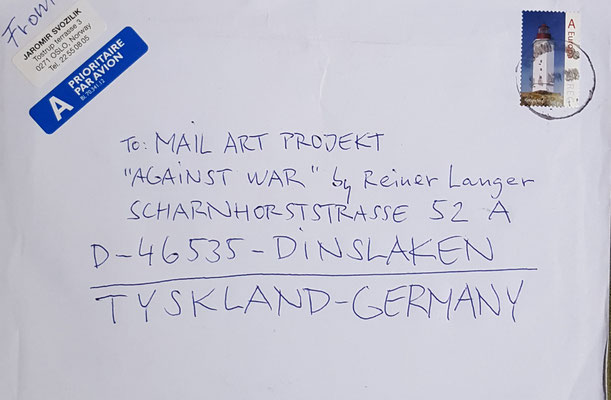 From:
JAROMIR SVOZILIK
Tostrup terrasse 3
0271 OSLO, Norway
Tel. 22 55 08 05
A PRIORITAIRE
PAR AVION
A Europa
To: MAIL ART PROJEKT
"AGAINST WAR" by Reiner Langer
SCHARNHORSTSTRASSE 52 A
D-46535-DINSLAKEN
TYSKLAND-GERMANY